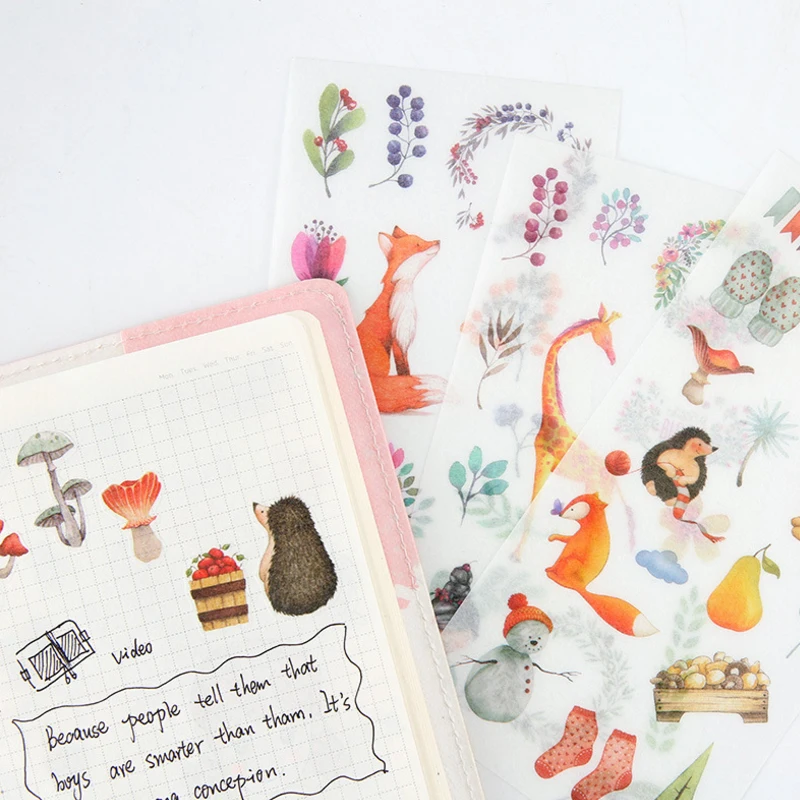 Mon Tues Wed Thur Fri Sat Sun
video
Because people tell them that
boys are smarter than tham. It's
concepion.